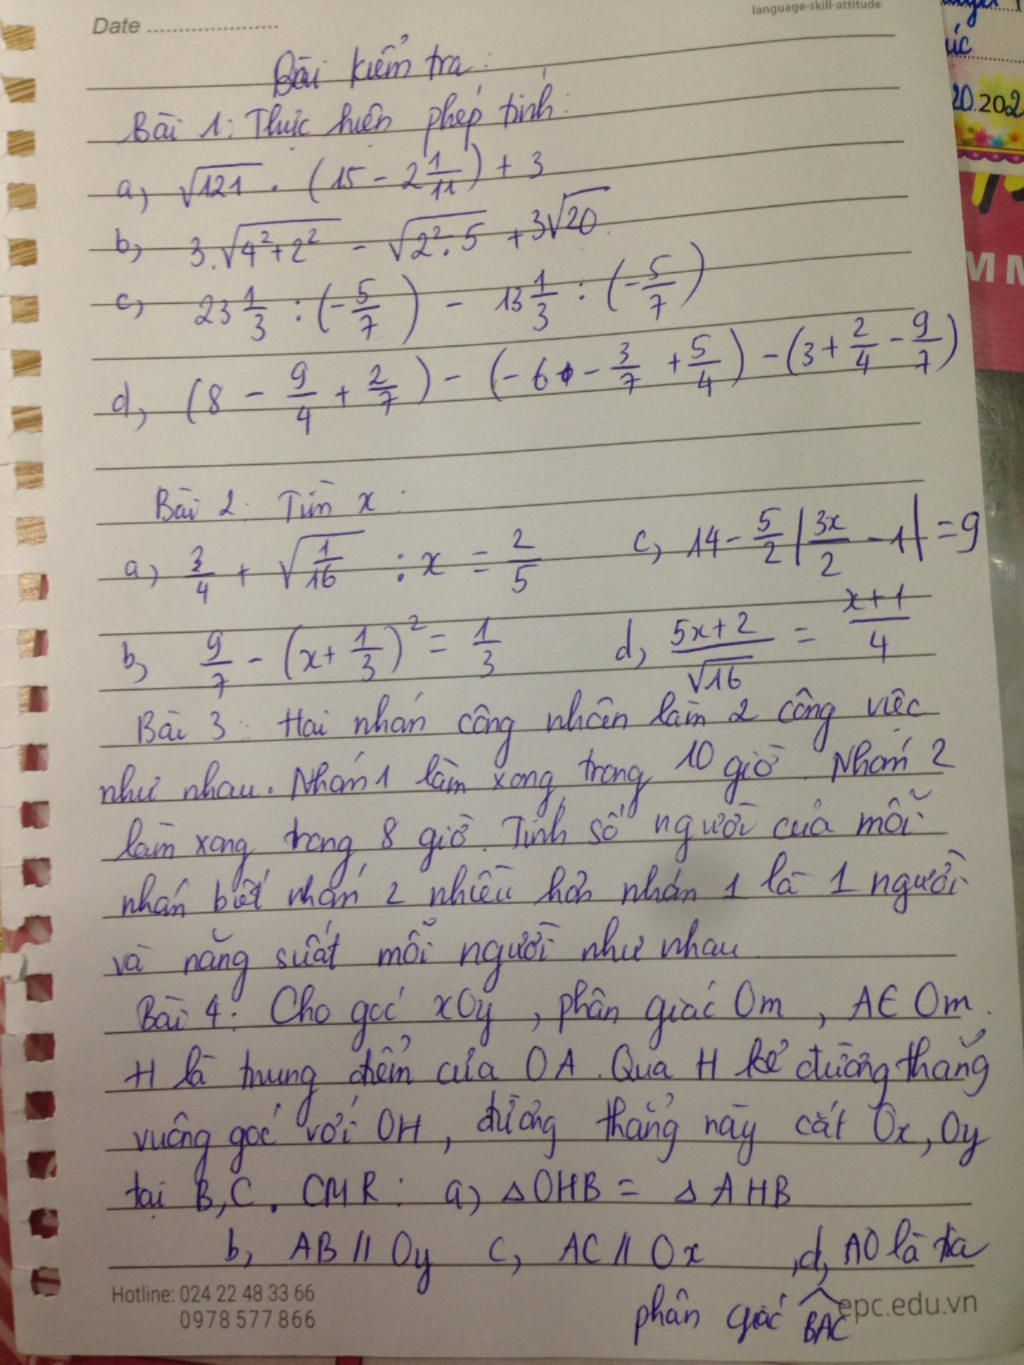 language-skill-attitude
Date
úc
20.202
MM
Bài kiểm tra:
Bài 1: Thực hiện phép tính:
a) √121 . (15 - 2 1/11) + 3
b) 3.√(4² + 2²) - √(2².5) + 3√20
c) 23 1/3 : (-5/7) - 13 1/3 : (-5/7)
d) (8 - 9/4 + 2/7) - (-6 - 3/7 + 5/4) - (3 + 2/4 - 9/7)
Bài 2: Tìm x:
a) 3/4 + √(1/16) : x = 2/5 c) 14 - 5/2 |3x/2 - 1| = 9
b) 9/7 - (x + 1/3)² = 1/3 d) (5x+2)/√16 = (x+1)/4
Bài 3: Hai nhóm công nhân làm 2 công việc
như nhau. Nhóm 1 làm xong trong 10 giờ. Nhóm 2
làm xong trong 8 giờ. Tính số người của mỗi
nhóm biết nhóm 2 nhiều hơn nhóm 1 là 1 người
và năng suất mỗi người như nhau
Bài 4: Cho góc xOy, phân giác Om, A∈Om.
H là trung điểm của OA. Qua H kẻ đường thẳng
vuông góc với OH, đường thẳng này cắt Ox, Oy
tại B, C. CMR: a) ΔOHB = ΔAHB
b, AB // Oy c, AC // Ox , d, AO là tia
phân giác BAC
Hotline: 024 22 48 33 66
0978 577 866
epc.edu.vn